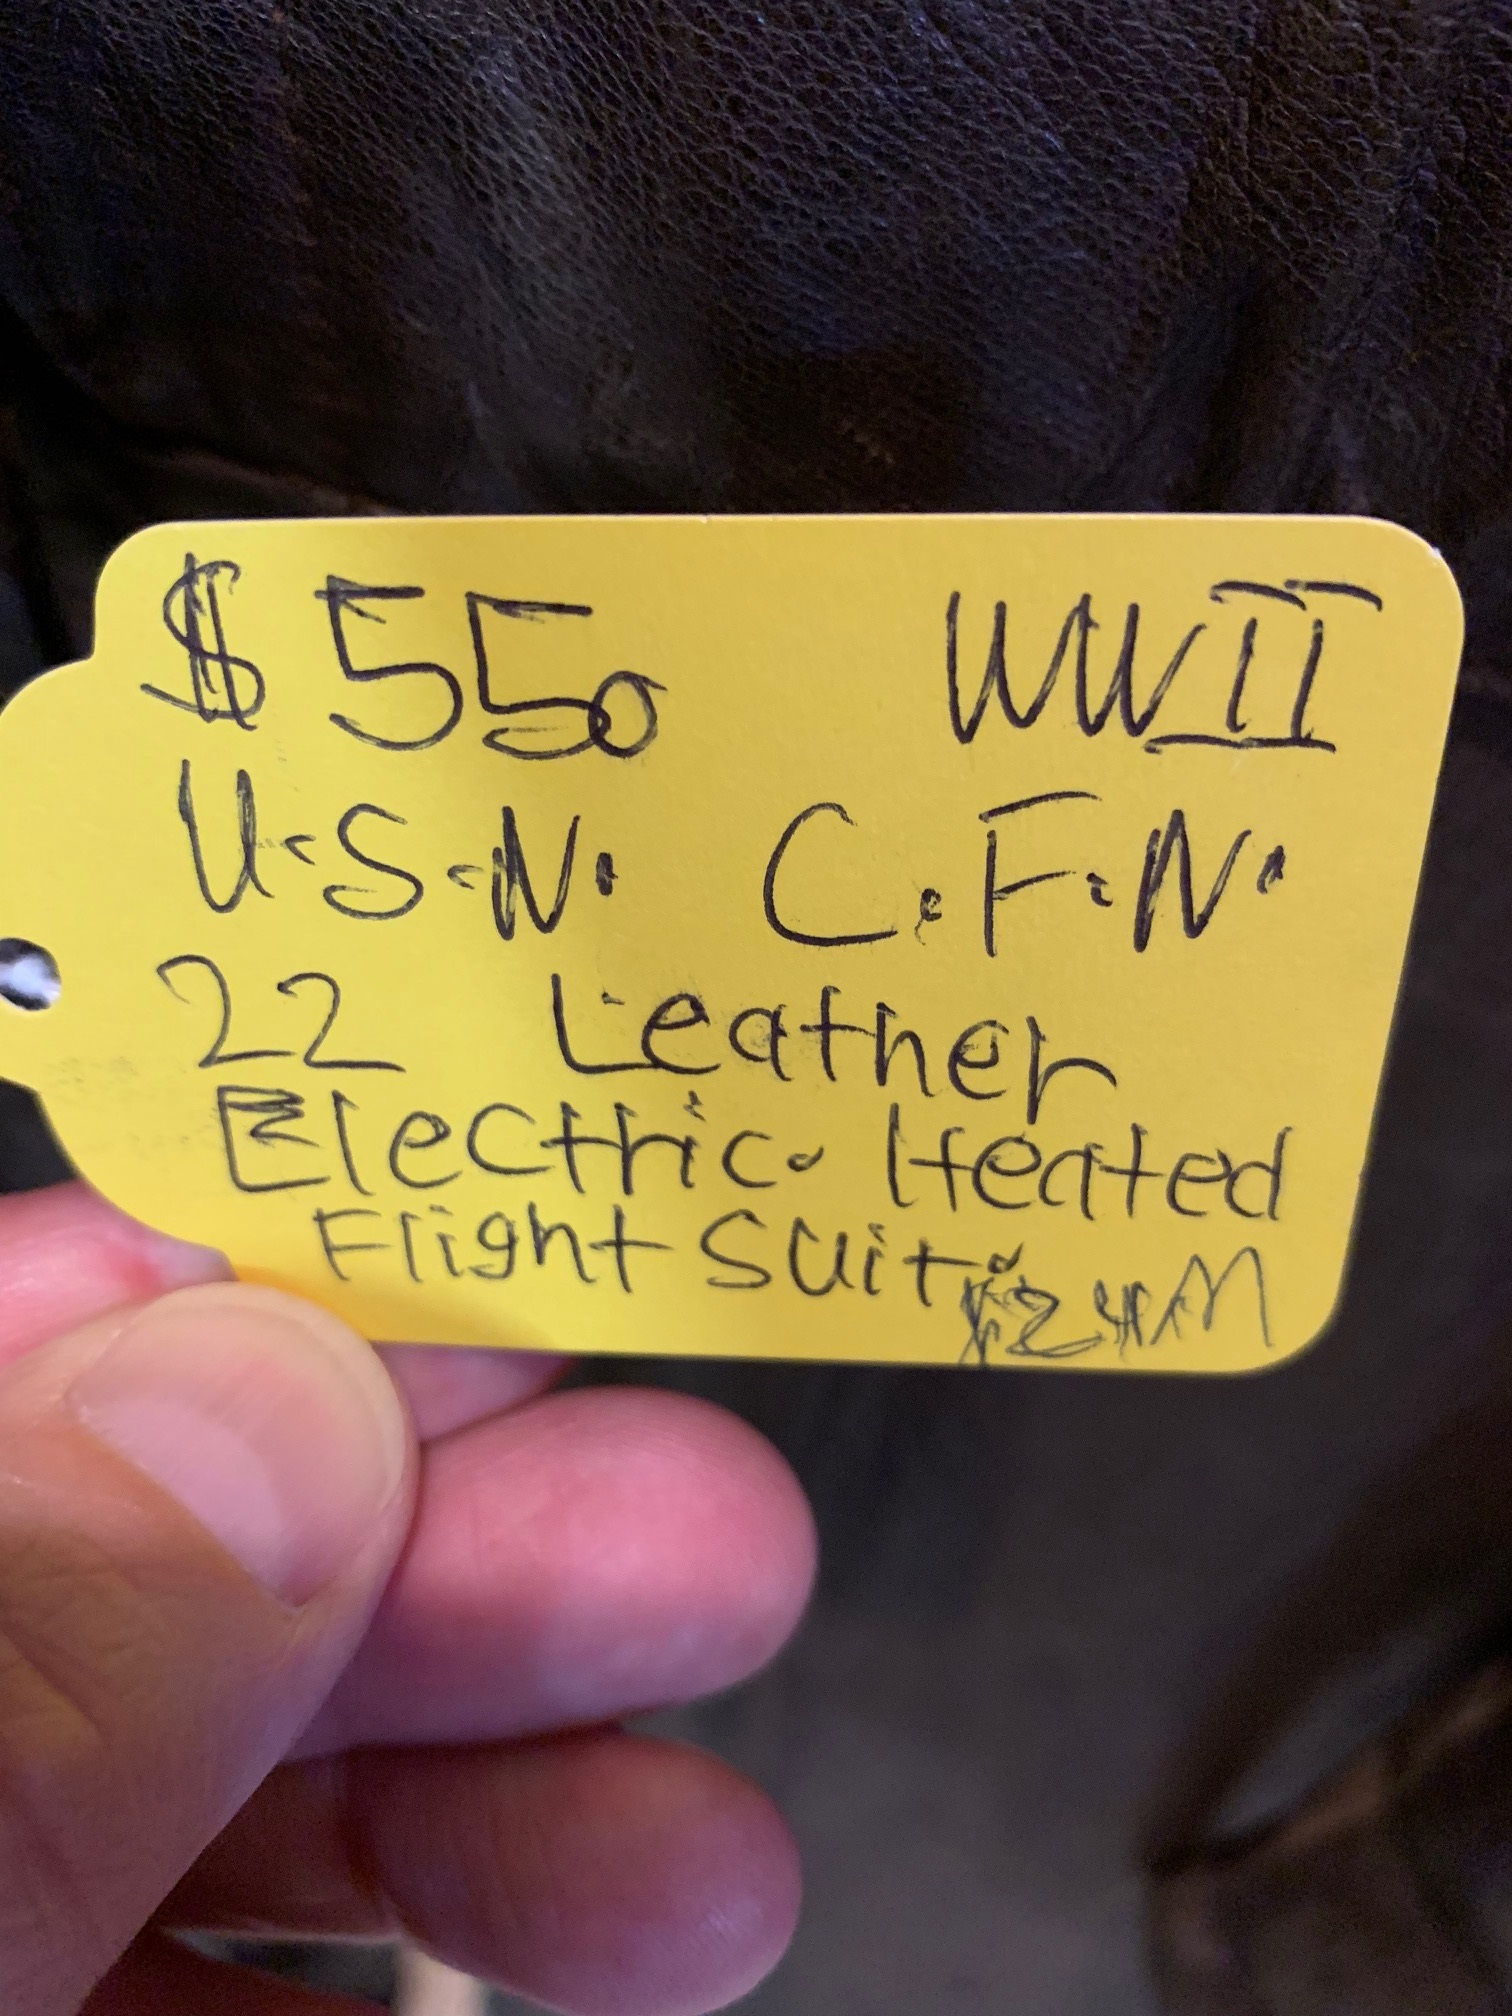 $550 WWII
U.S.N. C.F.N.
22 Leather
Electric Heated
Flight Suit